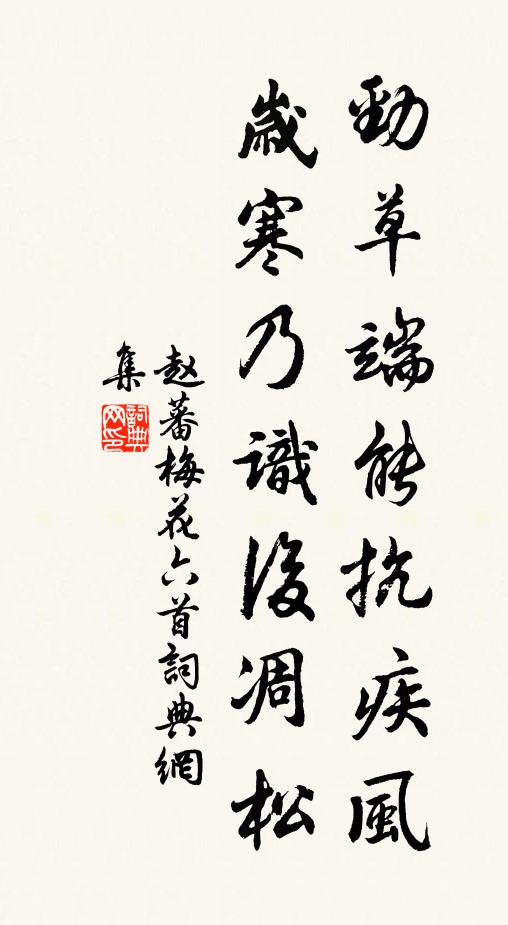 勁草端能抗疾風
歲寒乃識後凋松
赵蕃梅花六首詞典網
集
詞典
网印